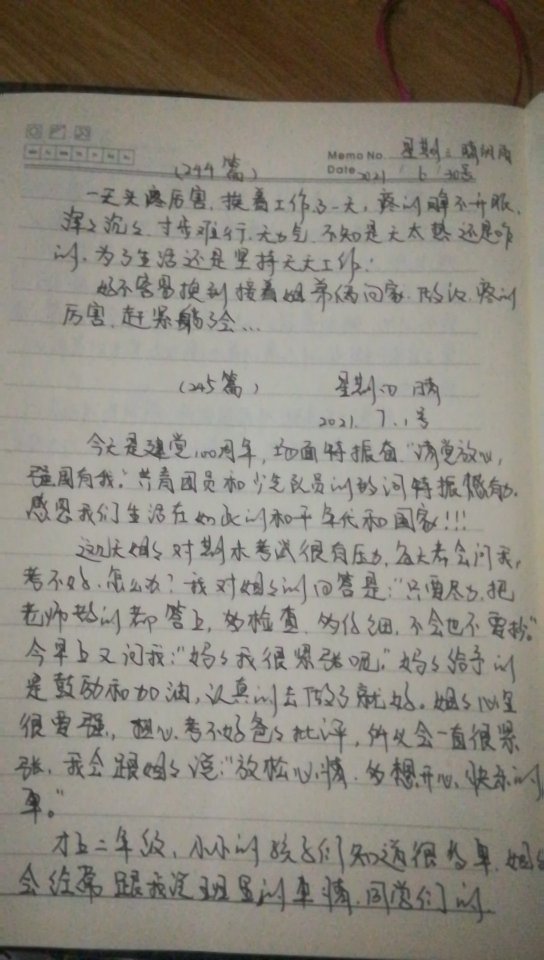 Memo No. 星期三 晴
(244篇) Date 2021 6 30号
一天头疼厉害,挨着工作了一天,疼的睁不开眼,
深深沉沉 寸步难行,无力气,不知是天太热还是咋
的,为了生活还是坚持天天工作.
好不容易挨到接着姐弟俩回家,做汉,疼的
厉害,赶紧躺了会...
(245篇) 星期四 晴
2021. 7. 1号
今天是建党100周年,场面特振奋"请党放心,
强国有我."共青团员和少先队员的的词特振
感恩我们生活在如此的和平年代和国家!!!
这几天姐姐对期末考试很有压力,每天都会问我,
考不好,怎么办?我对姐姐的回答是:"只要尽力,把
老师教的都答上,多检查,多仔细,不会也不要抄."
今早上又问我:"妈妈我很紧张呢."妈妈给予的
是鼓励和加油,认真的去做了就好。姐姐心里
很要强,担心考不好爸爸批评,所以会一直很紧
张,我会跟姐姐说:"放松心情,多想开心,快乐的
事。"
才上二年级,小小的孩子们知道很多事,姐姐
会经常跟我说班里的事情,同学们的